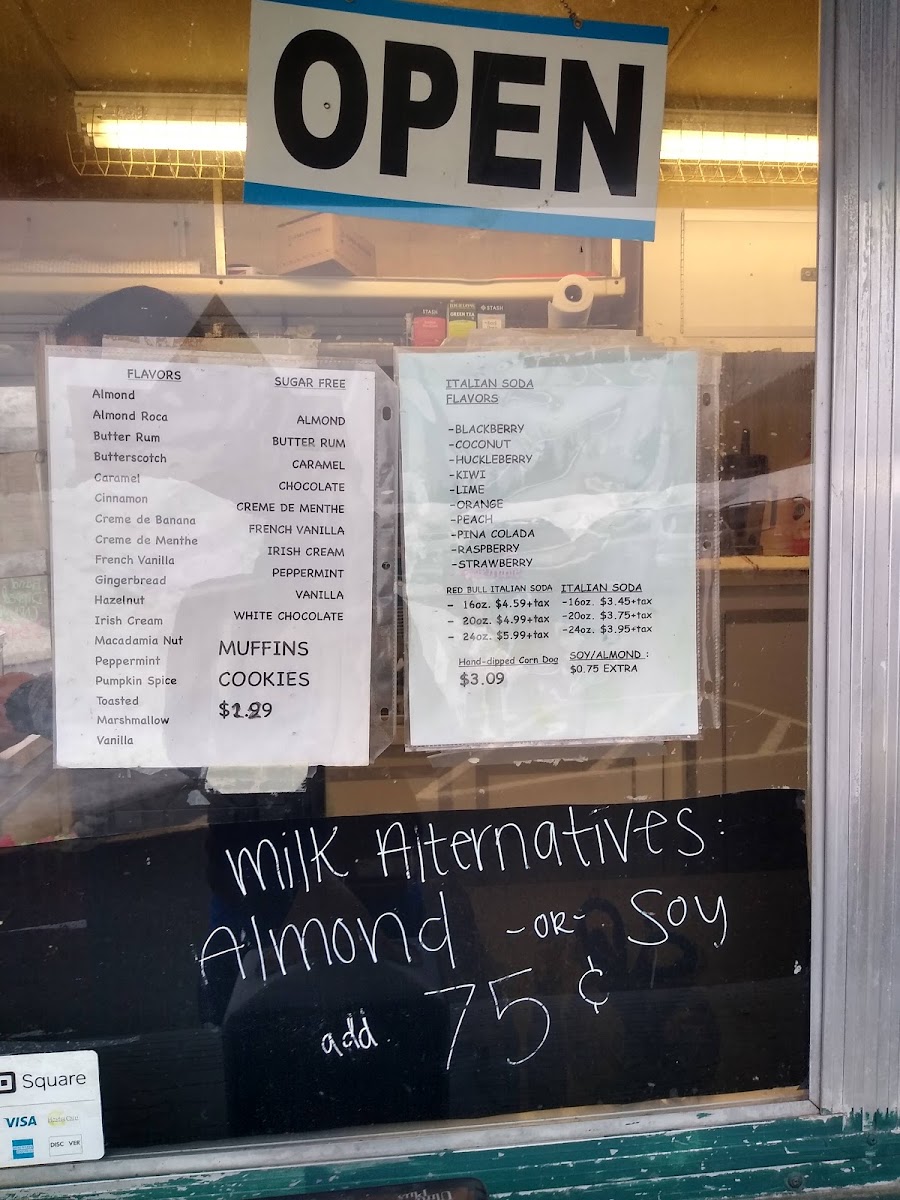 OPEN
STASH
GREEN TEA
STASH
FLAVORS
Almond
Almond Roca
Butter Rum
Butterscotch
Caramel
Cinnamon
Creme de Banana
Creme de Menthe
French Vanilla
Gingerbread
Hazelnut
Irish Cream
Macadamia Nut
Peppermint
Pumpkin Spice
Toasted
Marshmallow
Vanilla
SUGAR FREE
ALMOND
BUTTER RUM
CARAMEL
CHOCOLATE
CREME DE MENTHE
FRENCH VANILLA
IRISH CREAM
PEPPERMINT
VANILLA
WHITE CHOCOLATE
MUFFINS
COOKIES
ITALIAN SODA
FLAVORS
-BLACKBERRY
-COCONUT
-HUCKLEBERRY
-KIWI
-LIME
-ORANGE
-PEACH
-PINA COLADA
-RASPBERRY
-STRAWBERRY
RED BULL ITALIAN SODA
- 16oz. $4.59+tax
- 20oz. $4.99+tax
- 24oz. $5.99+tax
ITALIAN SODA
-16oz. $3.45+tax
-20oz. $3.75+tax
-24oz. $3.95+tax
Hand-dipped Corn Dog
$3.09
SOY/ALMOND :
$0.75 EXTRA
Milk Alternatives:
Almond -OR- Soy
add 75¢
Square
VISA
DISCOVER